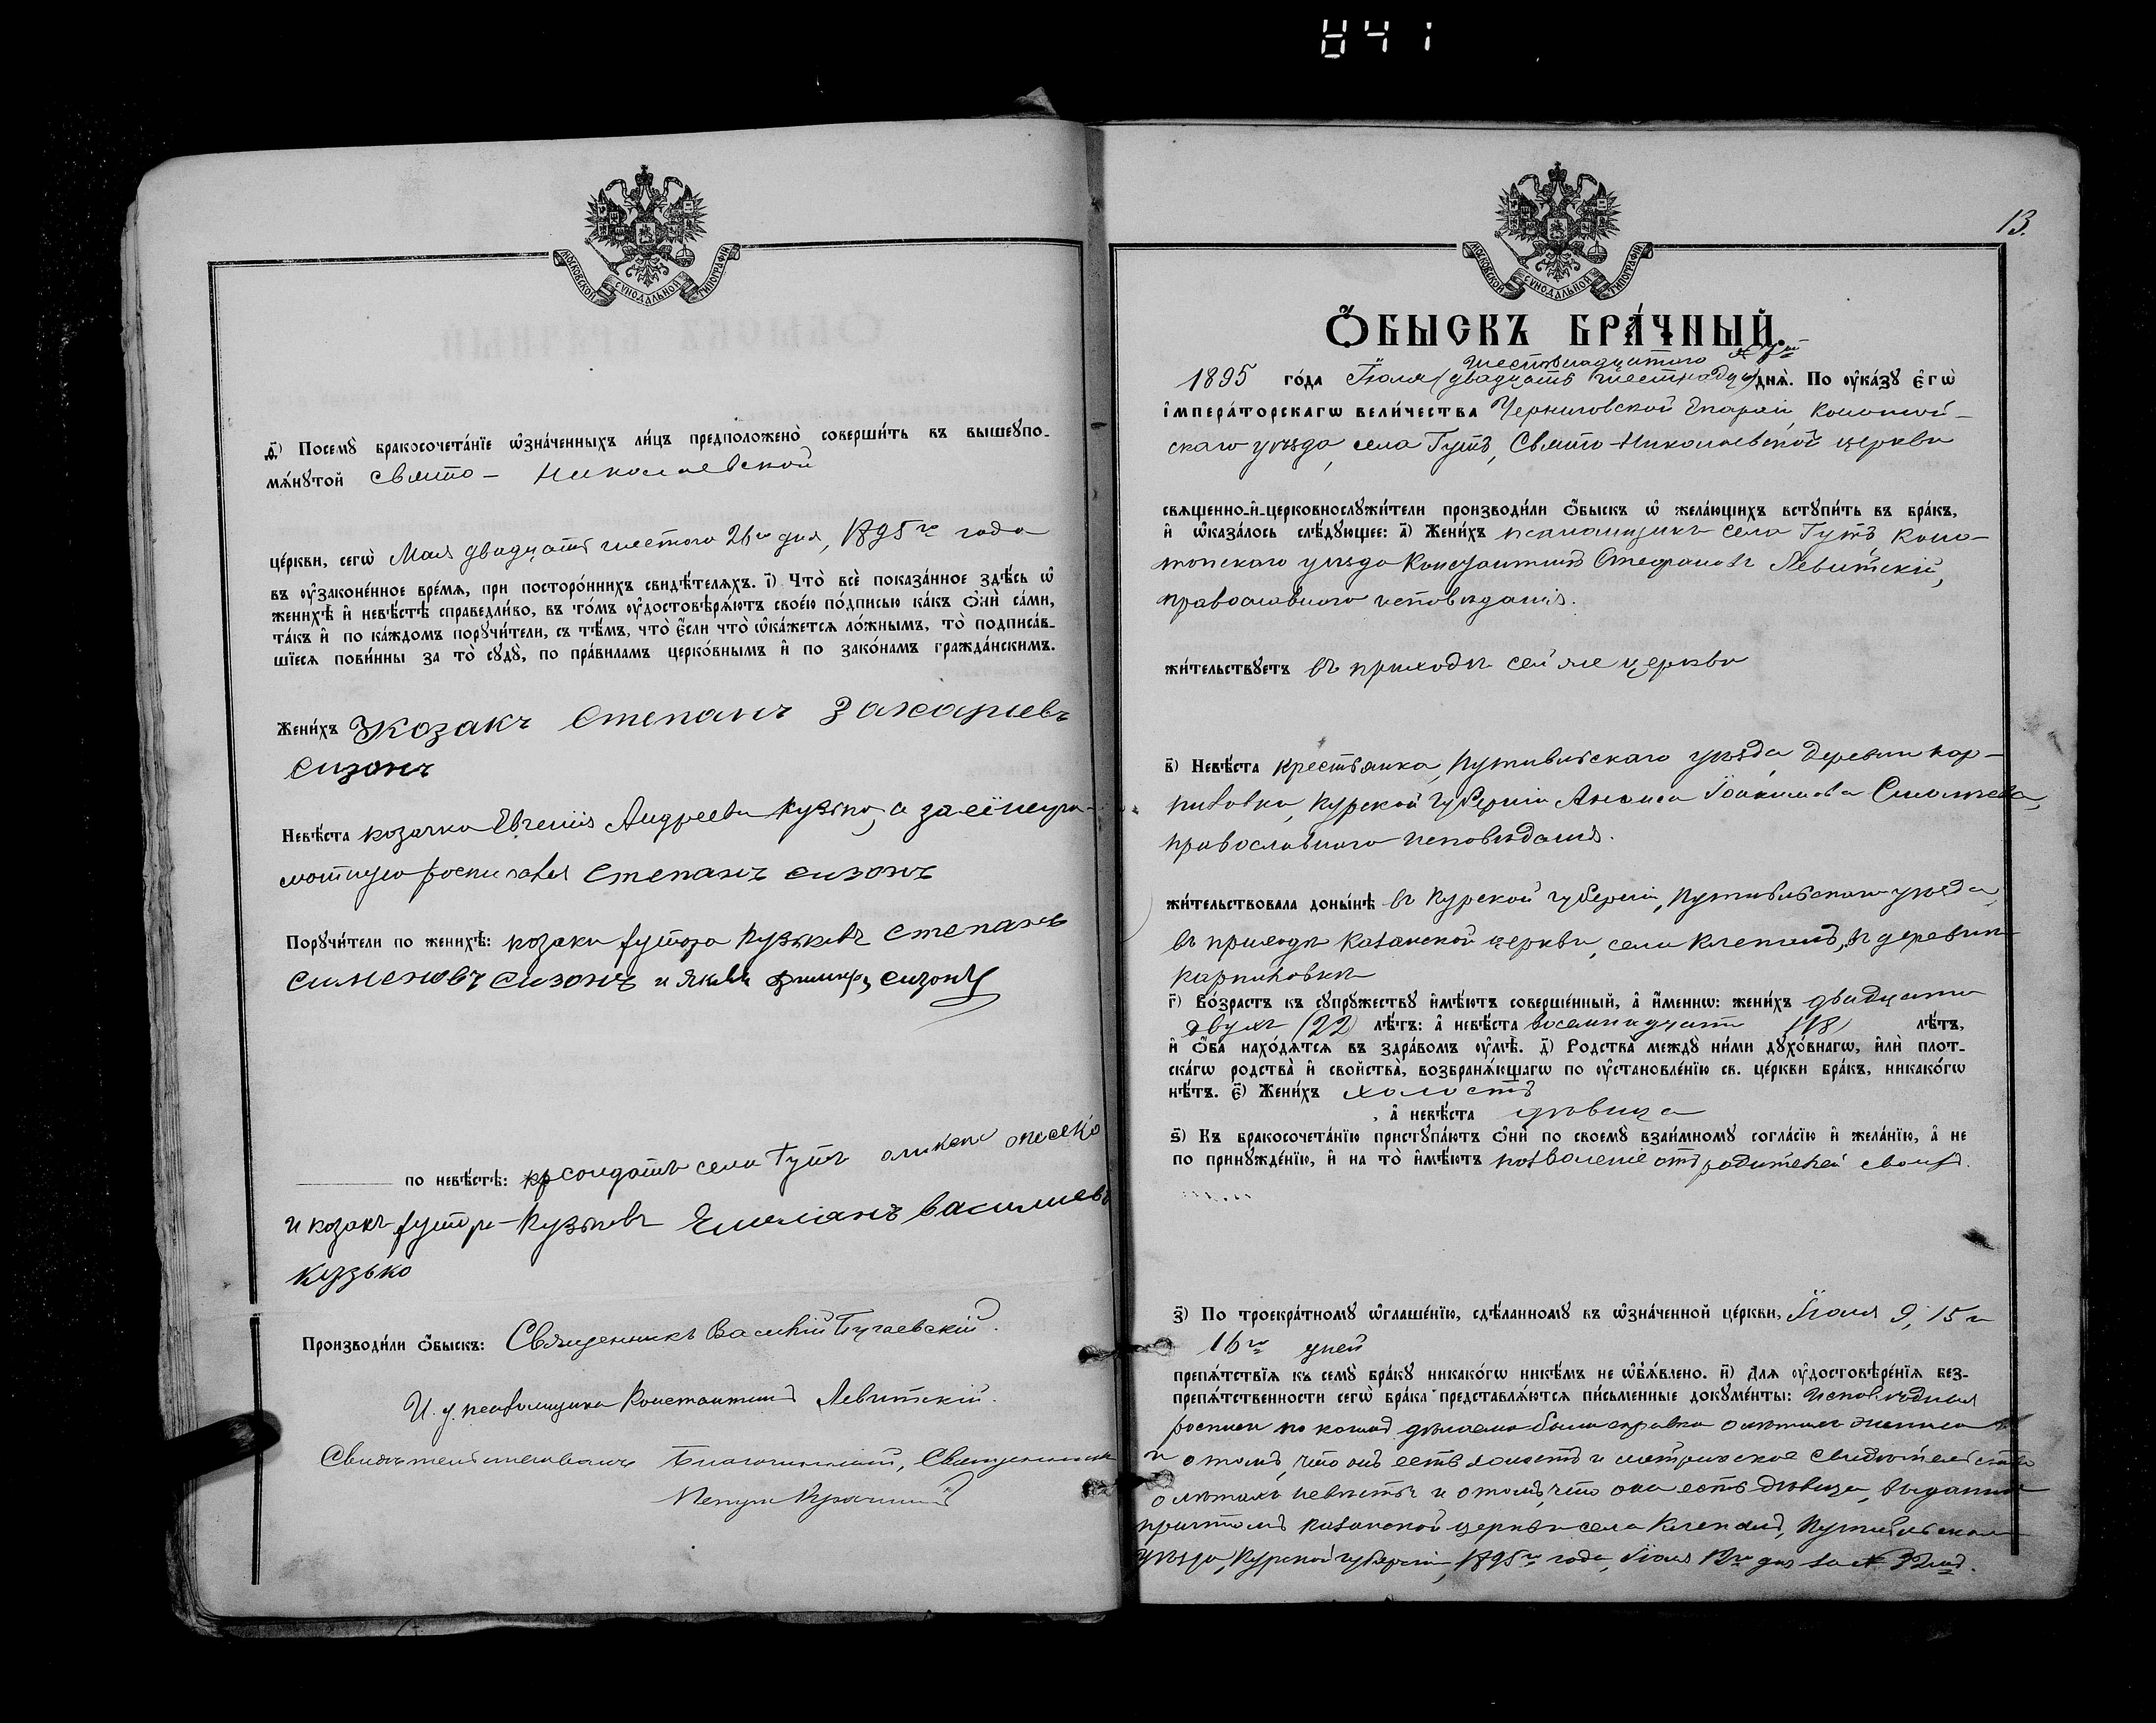 841
МОСКОВСКОЙ СѴНОДАЛЬНОЙ ТИПОГРАФІИ
ѳ҃) Посемꙋ̀ бракосочета́нїе ѡ҆зна́ченныхъ ли́цъ предположено̀ соверши́ть въ вышеꙋпо-
мѧ́нꙋтой Свято - Николаевской
це́ркви, сегѡ̀ Мая двадцать шестого 26го дня, 1895го года
въ ᲂу҆законе́нное вре́мѧ, при посторо́ннихъ свидѣ́телѧхъ. і҃) Что̀ всѐ показа́нное здѣ́сь ѡ҆
женихѣ̀ и҆ невѣ́стѣ справедли́во, въ то́мъ ᲂу҆достовѣрѧ́ютъ свое́ю по́дписью ка́къ ѻ҆нѝ са́ми,
та́къ и҆ по ка́ждомъ порꙋчи́тели, съ тѣ́мъ, что̀ є҆́сли что̀ ѡ҆ка́жетсѧ ло́жнымъ, то̀ подписа́в-
шїесѧ пови́нны за то̀ сꙋдꙋ̀, по пра́виламъ церко́внымъ и҆ по зако́намъ гражда́нскимъ.
Жени́хъ Козакъ Степанъ Захаріевъ
Сизонъ
Невѣ́ста козачка Евгенія Андреева Кузько, а за неё негра-
мотную росписался Степанъ Сизонъ
Порꙋчи́тели по женихѣ̀: козаки хутора Кузьковъ Степанъ
Сименовъ Сизонъ и Яковъ Сизонъ
по невѣ́стѣ: солдатъ села Гутъ
и козакъ хутора Кузьковъ Емеліанъ Василиевъ
Кузько
Производи́ли ѻ҆́быскъ: Священникъ Василій Бугаевскій.
И. д. псаломщика Константинъ Левитскій.
Свидѣтельствовалъ Благочинный, Священникъ
13.
МОСКОВСКОЙ СѴНОДАЛЬНОЙ ТИПОГРАФІИ
Ѻ҆́БЫСКЪ БРА́ЧНЫЙ.
шестьнадцатого № 7й
1895 го́да Іюля (двадцать шестнадц) днѧ̀. По ᲂу҆ка́зꙋ є҆гѡ̀
и҆мпера́торскагѡ вели́чества Черниговской Епархіи, Конотоп-
скаго уѣзда, села Гутъ, Свято-Николаевской церкви
свѧщенно-и҆-церковнослꙋжи́тели производи́ли ѻ҆́быскъ ѡ҆ жела́ющихъ встꙋпи́ть въ бра́къ,
и҆ ѡ҆каза́лось слѣ́дꙋющее: а҃) Жени́хъ псаломщикъ села Гутъ Коно-
топскаго уѣзда Константинъ Стефановъ Левитскій,
православного исповѣданія.
жи́тельствꙋетъ въ приходѣ сей же церкви
в҃) Невѣ́ста крестьянка, Путивльскаго уѣзда деревни Кар-
пиловки, Курской губерніи Анисія Іоакимова
православного исповѣданія.
жи́тельствовала доны́нѣ въ Курской губерніи, Путивльского уѣзда,
въ приходѣ Казанской церкви, села Клепалъ, въ деревни
Карпиловки
г҃) Во́зрастъ къ сꙋпрꙋ́жествꙋ и҆мѣ́ютъ соверше́нный, а҆ и҆́меннѡ: жени́хъ двадцати
двухъ (22) лѣ́тъ: а҆ невѣ́ста восемнадцати (18) лѣ́тъ,
и҆ ѻ҆́ба нахо́дѧтсѧ въ здра́вомъ ᲂу҆мѣ̀. д҃) Родства̀ междꙋ̀ ни́ми дꙋхо́внагѡ, и҆лѝ плот-
ска́гѡ родства̀ и҆ свойства̀, возбранѧ́ющагѡ по ᲂу҆становле́нїю св. це́ркви бра́къ, никако́гѡ
нѣ́тъ. є҃) Жени́хъ холостъ
, а҆ невѣ́ста дѣвица
ѕ҃) Къ бракосочета́нїю пристꙋпа́ютъ ѻ҆нѝ по своемꙋ̀ взаи́мномꙋ согла́сїю и҆ жела́нїю, а҆ не
по принꙋжде́нїю, и҆ на то̀ и҆мѣ́ютъ позволеніе отъ родителей своихъ.
з҃) По троекра́тномꙋ ѡ҆глаше́нїю, сдѣ́ланномꙋ въ ѡ҆зна́ченной це́ркви, Іюля 9, 15 и
16го дней
препѧ́тствїѧ къ семꙋ̀ бра́кꙋ никако́гѡ никѣ́мъ не ѡ҆б̾ѧ́влено. и҃) Длѧ ᲂу҆достовѣре́нїѧ без-
препѧ́тственности сегѡ̀ бра́ка представлѧ́ютсѧ пи́сьменные докꙋме́нты: Исповѣдная
роспись по коимъ дѣлаема была справка о лѣтахъ жениха
и о томъ, что онъ есть холостъ и метрическое свидѣтельство
о лѣтахъ невѣсты и о томъ, что она есть дѣвица, выданное
причтомъ Казанской церкви села Клепалъ, Путивльскаго
уѣзда, Курской губерніи, 1895го года, Іюля 13го дня за № 32мъ.